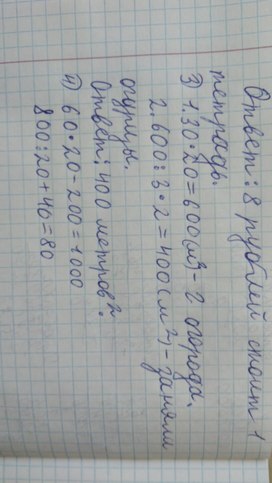 Ответ: 8 рублей стоит 1
тетрадь.
3) 1.30·20=600(м²)- S огорода.
2.600:3·2=400(м²)-заняли
огурцы.
Ответ: 400 метров².
4) 60·20-200=1000
800:20+40=80